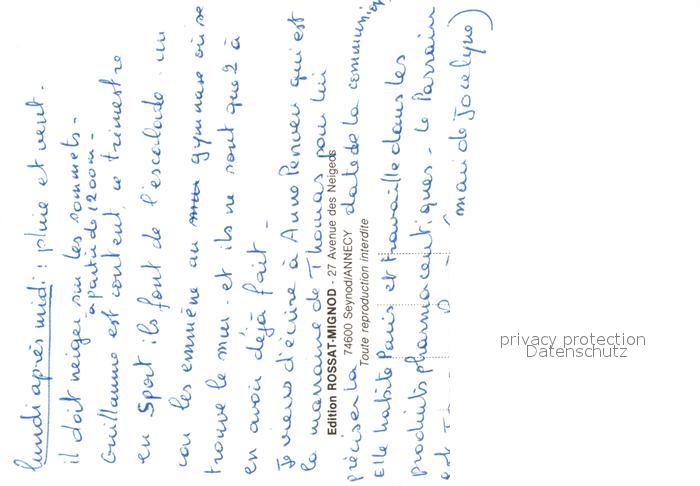 lundi après midi : pluie et vent.
il doit neiger sur les sommets -
à partir de 1200m -
Guillaume est content, ce trimestre
en sport ils font de l'escalade. un
car les emmène au gymnase où se
trouve le mur - et ils ne sont que 2 à
en avoir déjà fait -
Je viens d'écrire à Anne qui est
la marraine de Thomas pour lui
préciser la date de la communion
Elle habite Paris et travaille dans les
produits pharmaceutiques - le Parrain
(mari de Jocelyne)
Edition ROSSAT-MIGNOD - 27 Avenue des Neigeos
74600 Seynod/ANNECY
Toute reproduction interdite
privacy protection
Datenschutz